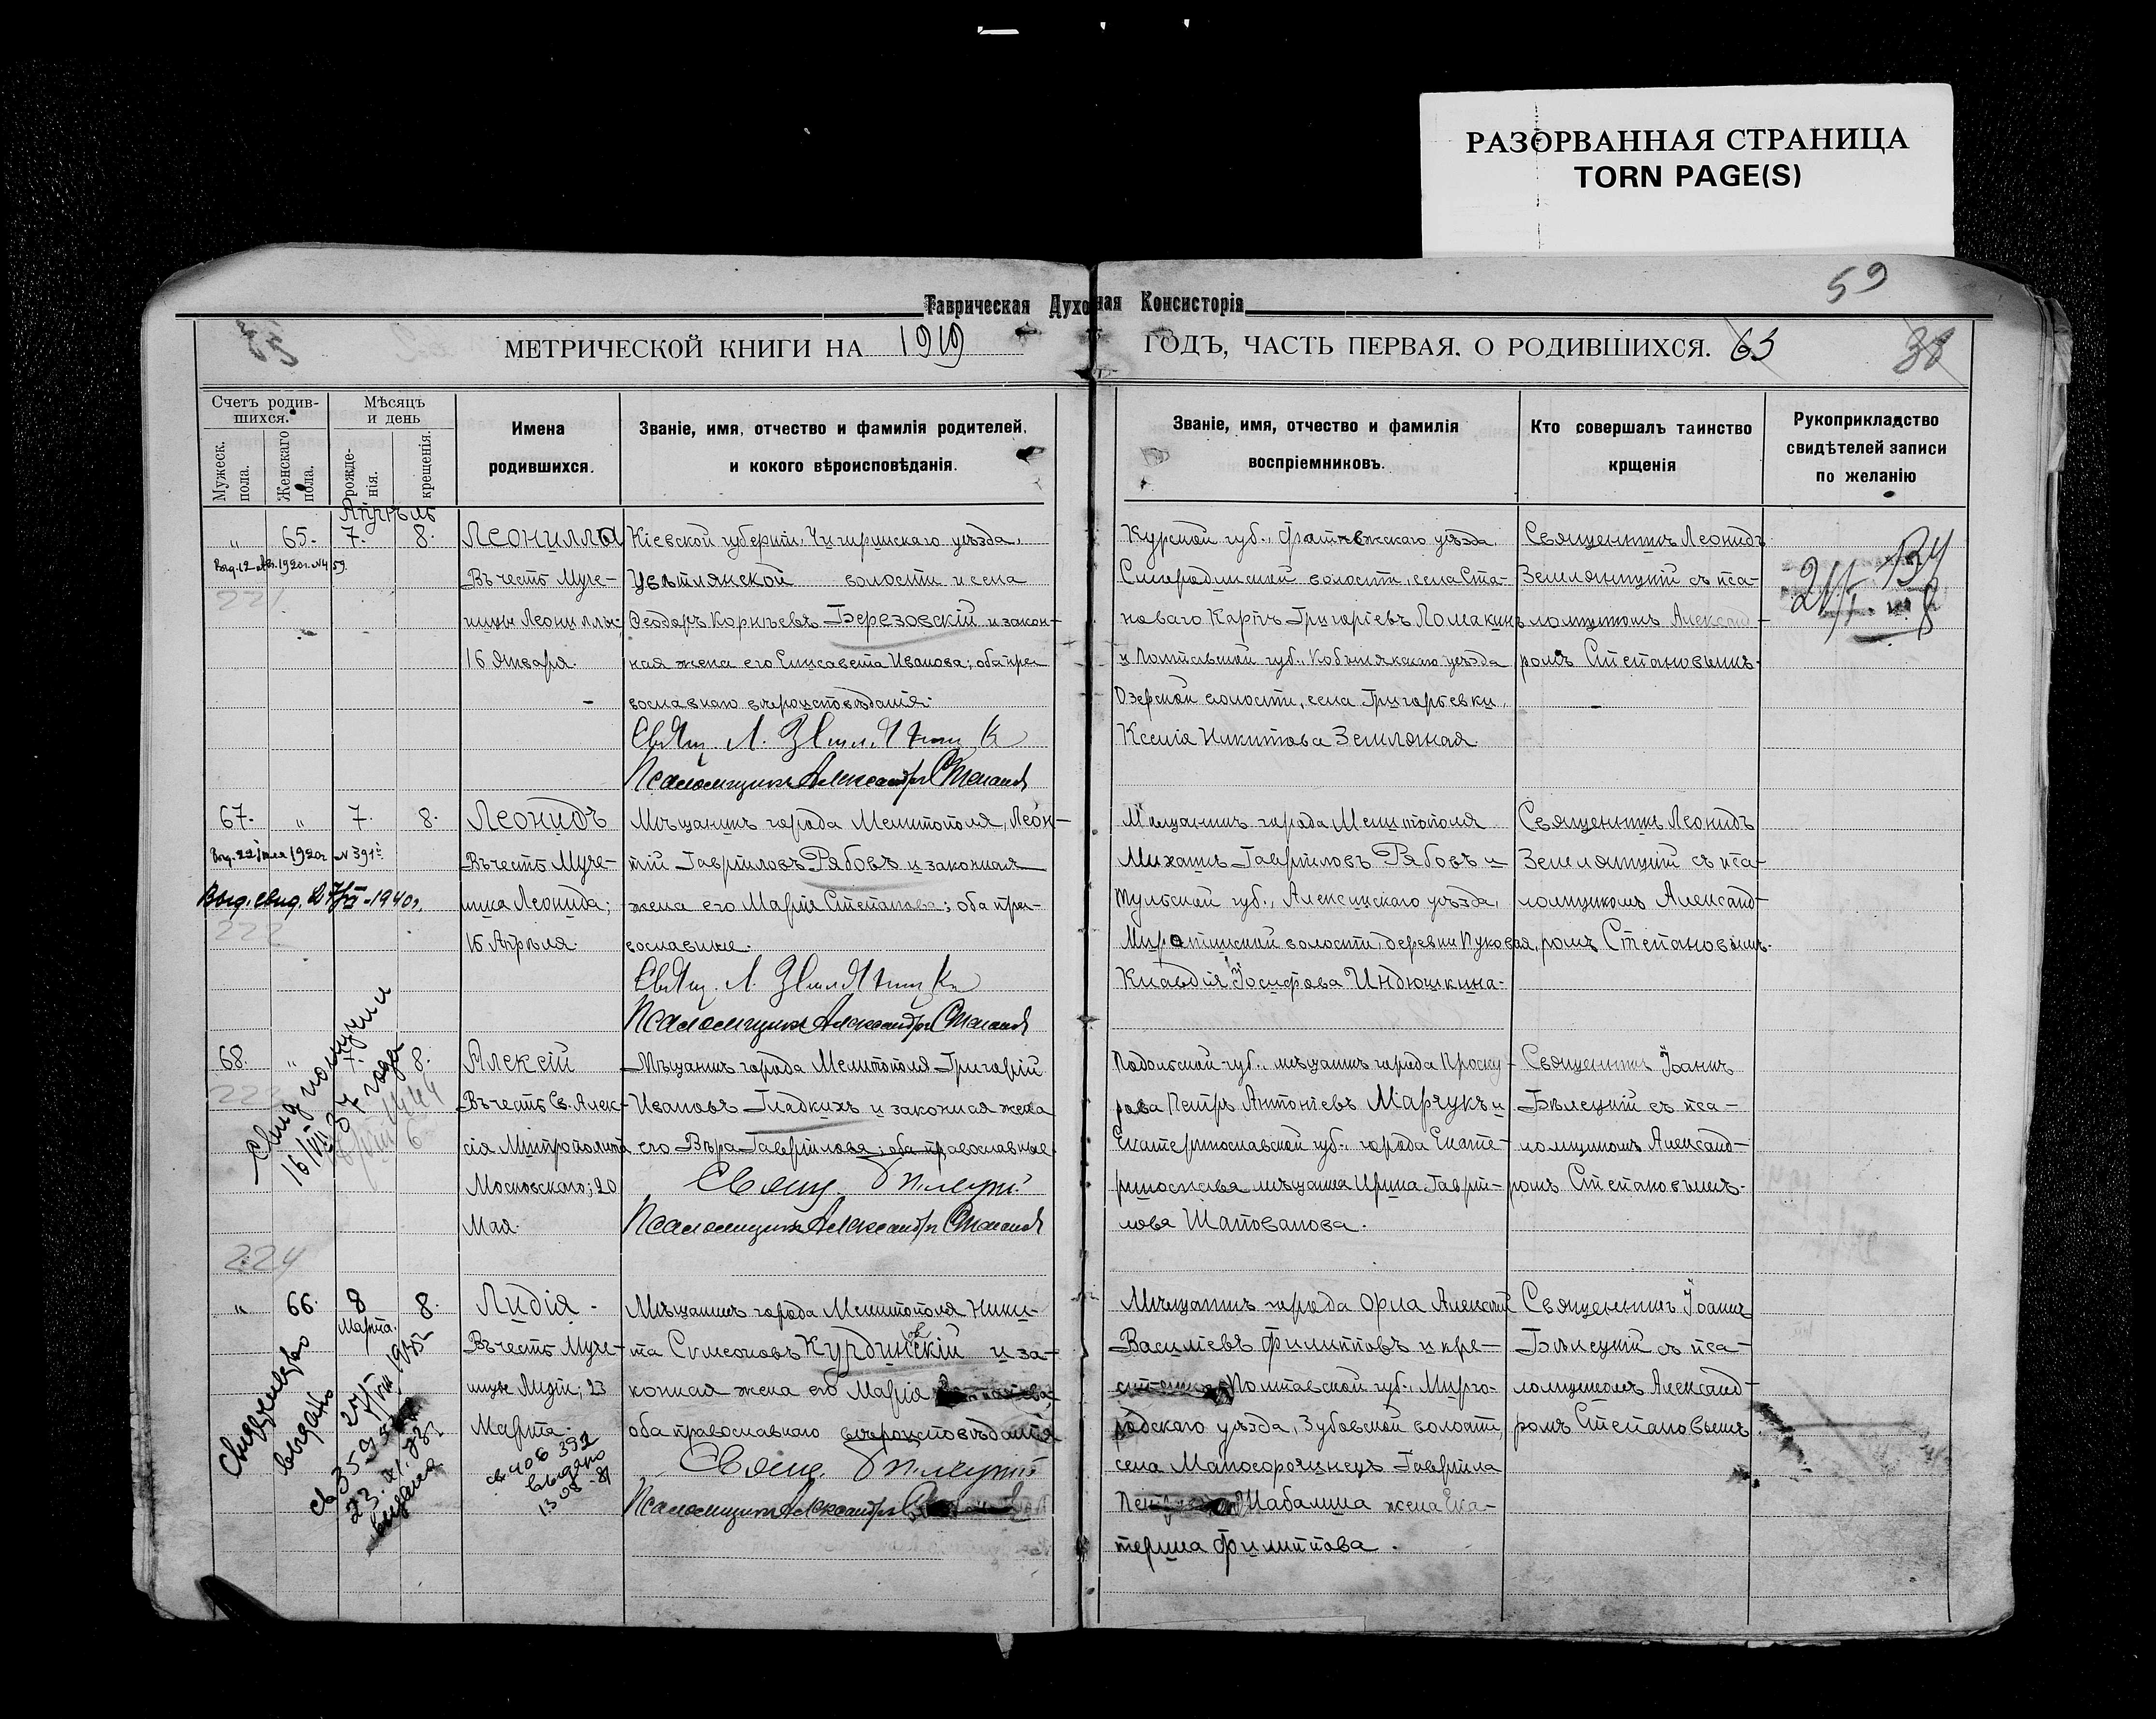 РАЗОРВАННАЯ СТРАНИЦА
TORN PAGE(S)
59
Таврическая Духовная Консисторія
МЕТРИЧЕСКОЙ КНИГИ НА 1919 ГОДЪ, ЧАСТЬ ПЕРВАЯ. О РОДИВШИХСЯ. 63 38
Счетъ родив-
шихся.
Мужеск. пола.
Женскаго пола.
Мѣсяцъ
и день
рожде-
нія.
крещенія.
Имена
родившихся.
Званіе, имя, отчество и фамилія родителей,
и кокого вѣроисповѣданія.
Званіе, имя, отчество и фамилія
воспріемниковъ.
Кто совершалъ таинство
крщенія
Рукоприкладство
свидѣтелей записи
по желанію
Апрѣль
" 65. 7. 8.
221
Леонилла
Въ честь Муче-
ницы Леониллы;
16 Января.
Кіевской губерніи, Чигиринскаго уѣзда,
волости и села
Ѳеодоръ Корнѣевъ Березовскій и закон-
ная жена его Елисавета Иванова; оба пра-
вославнаго вѣроисповѣданія.
Свящ. Л.
Псаломщикъ Александръ Степановъ
Курской губ., Фатежскаго уѣзда,
Смородинской волости, села Ста-
новаго Карпъ Григоріевъ Ломакинъ
и Полтавской губ., Кобелякскаго уѣзда
Озерской волости, села Григорьевки,
Ксенія Никитова Земляная.
Священникъ Леонидъ
Земляницкій съ пса-
ломщикомъ Александ-
ромъ Степановымъ.
67. " 7. 8.
Выд. 22 Іюля 1920г. № 391
Выд. свид. 1940г.
222
Леонидъ
Въ честь Муче-
ника Леонида;
16 Апрѣля.
Мѣщанинъ города Мелитополя, Леон-
тій Гавріиловъ Рябовъ и законная
жена его Марія Степанова; оба пра-
вославные.
Свящ. Л.
Псаломщикъ Александръ Степановъ
Мѣщанинъ города Мелитополя
Михаилъ Гавріиловъ Рябовъ и
Тульской губ., Алексинскаго уѣзда,
волости, деревни Пуковая,
Клавдія Іосифова Индюшкина.
Священникъ Леонидъ
Земляницкій съ пса-
ломщикомъ Александ-
ромъ Степановымъ.
68. " 7. 8.
223
Свид получили
16/VII 37 года
Алексій
Въ честь Св. Алек-
сія Митрополита
Московскаго; 20
Мая.
Мѣщанинъ города Мелитополя Григорій
Ивановъ Гладкихъ и законная жена
его Вѣра Гавріилова; оба православные.
Свящ. Бѣлецкій
Псаломщикъ Александръ Степановъ
Подольской губ., мѣщанинъ города Проску-
рова Петръ Антоніевъ Марчукъ и
Екатеринославской губ., города Екате-
ринослава мѣщанка Ирина Гаврі-
лова Шаповалова.
Священникъ Іоаннъ
Бѣлецкій съ пса-
ломщикомъ Александ-
ромъ Степановымъ.
224
" 66. 8 8.
Марта.
Свидѣтельство
выдано
выдана
Лидія.
Въ честь Муче-
ницы Лидіи; 23
Марта.
св 406 392
выдано
13 08 - 81
Мѣщанинъ города Мелитополя Ники-
та Симеоновъ Курдиновскій и за-
конная жена его Марія
оба православнаго вѣроисповѣданія
Свящ. Бѣлецкій
Псаломщикъ Александръ
Мѣщанинъ города Орла Алексій
Василіевъ Филипповъ и кре-
Полтавской губ., Мирго-
родскаго уѣзда, Зубовской волости,
села Малосорочинецъ Гавріила
Шабалина жена Ека-
терина Филиппова.
Священникъ Іоаннъ
Бѣлецкій съ пса-
ломщикомъ Александ-
ромъ Степановымъ.